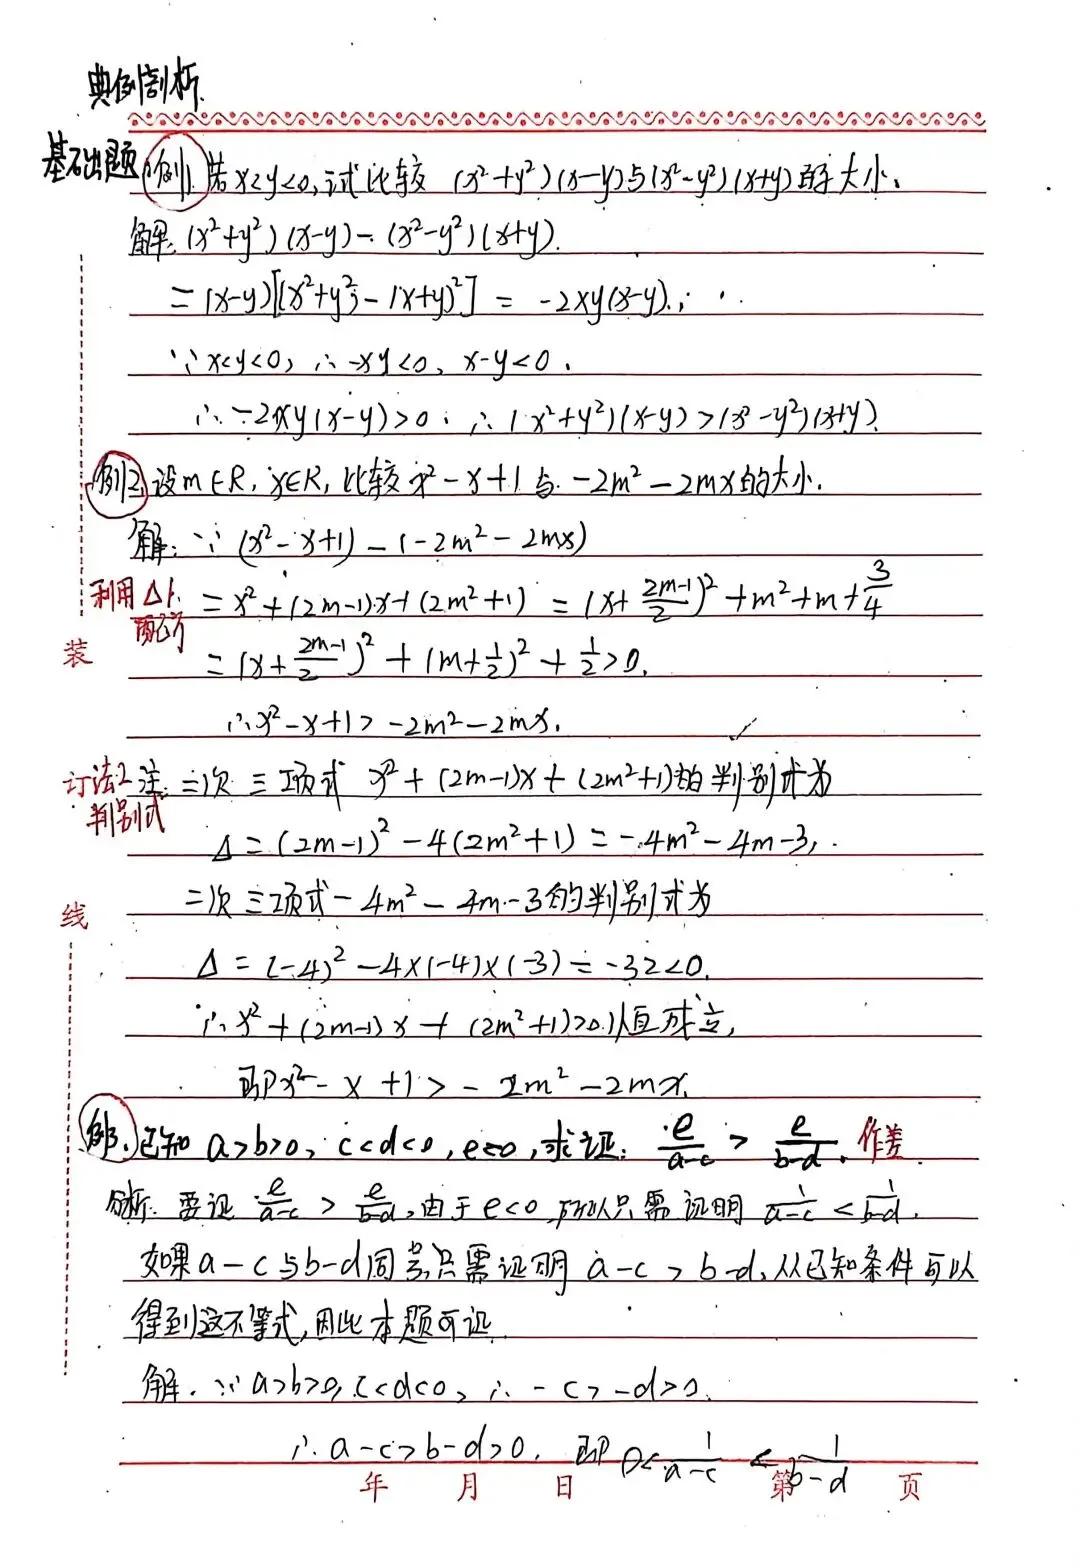 典例剖析.
基础题 例1. 若x<y<0,试比较 (x²+y²)(x-y)与(x²-y²)(x+y)的大小.
解: (x²+y²)(x-y)-(x²-y²)(x+y).
=(x-y)[(x²+y²)-(x+y)²] = -2xy(x-y).
∵x<y<0, ∴-xy<0, x-y<0.
∴-2xy(x-y)>0. ∴(x²+y²)(x-y)>(x²-y²)(x+y).
例2. 设m∈R, x∈R, 比较x²-x+1与-2m²-2mx的大小.
解: ∵(x²-x+1)-(-2m²-2mx)
利用△1. =x²+(2m-1)x+(2m²+1) = (x+\frac{2m-1}{2})²+m²+m+\frac{3}{4}
配方 =(x+\frac{2m-1}{2})²+(m+\frac{1}{2})²+\frac{1}{2}>0.
装
∴x²-x+1>-2m²-2mx.
订 法2 注: 二次三项式 x²+(2m-1)x+(2m²+1)的判别式为
判别式
△=(2m-1)²-4(2m²+1)=-4m²-4m-3,
二次三项式-4m²-4m-3的判别式为
线
△=(-4)²-4×(-4)×(-3)=-32<0.
∴x²+(2m-1)x+(2m²+1)>0恒成立,
即x²-x+1>-2m²-2mx.
例3. 已知 a>b>0, c<d<0, e<0, 求证: \frac{e}{a-c} > \frac{e}{b-d}. 作差.
分析: 要证 \frac{e}{a-c} > \frac{e}{b-d}, 由于e<0,所以只需证明 \frac{1}{a-c} < \frac{1}{b-d}.
如果a-c与b-d同号,只需证明 a-c>b-d, 从已知条件可以
得到这不等式,因此本题可证.
解. ∵a>b>0, c<d<0, ∴-c>-d>0.
∴a-c>b-d>0. 即 0<\frac{1}{a-c}<\frac{1}{b-d}
年 月 日 第 页